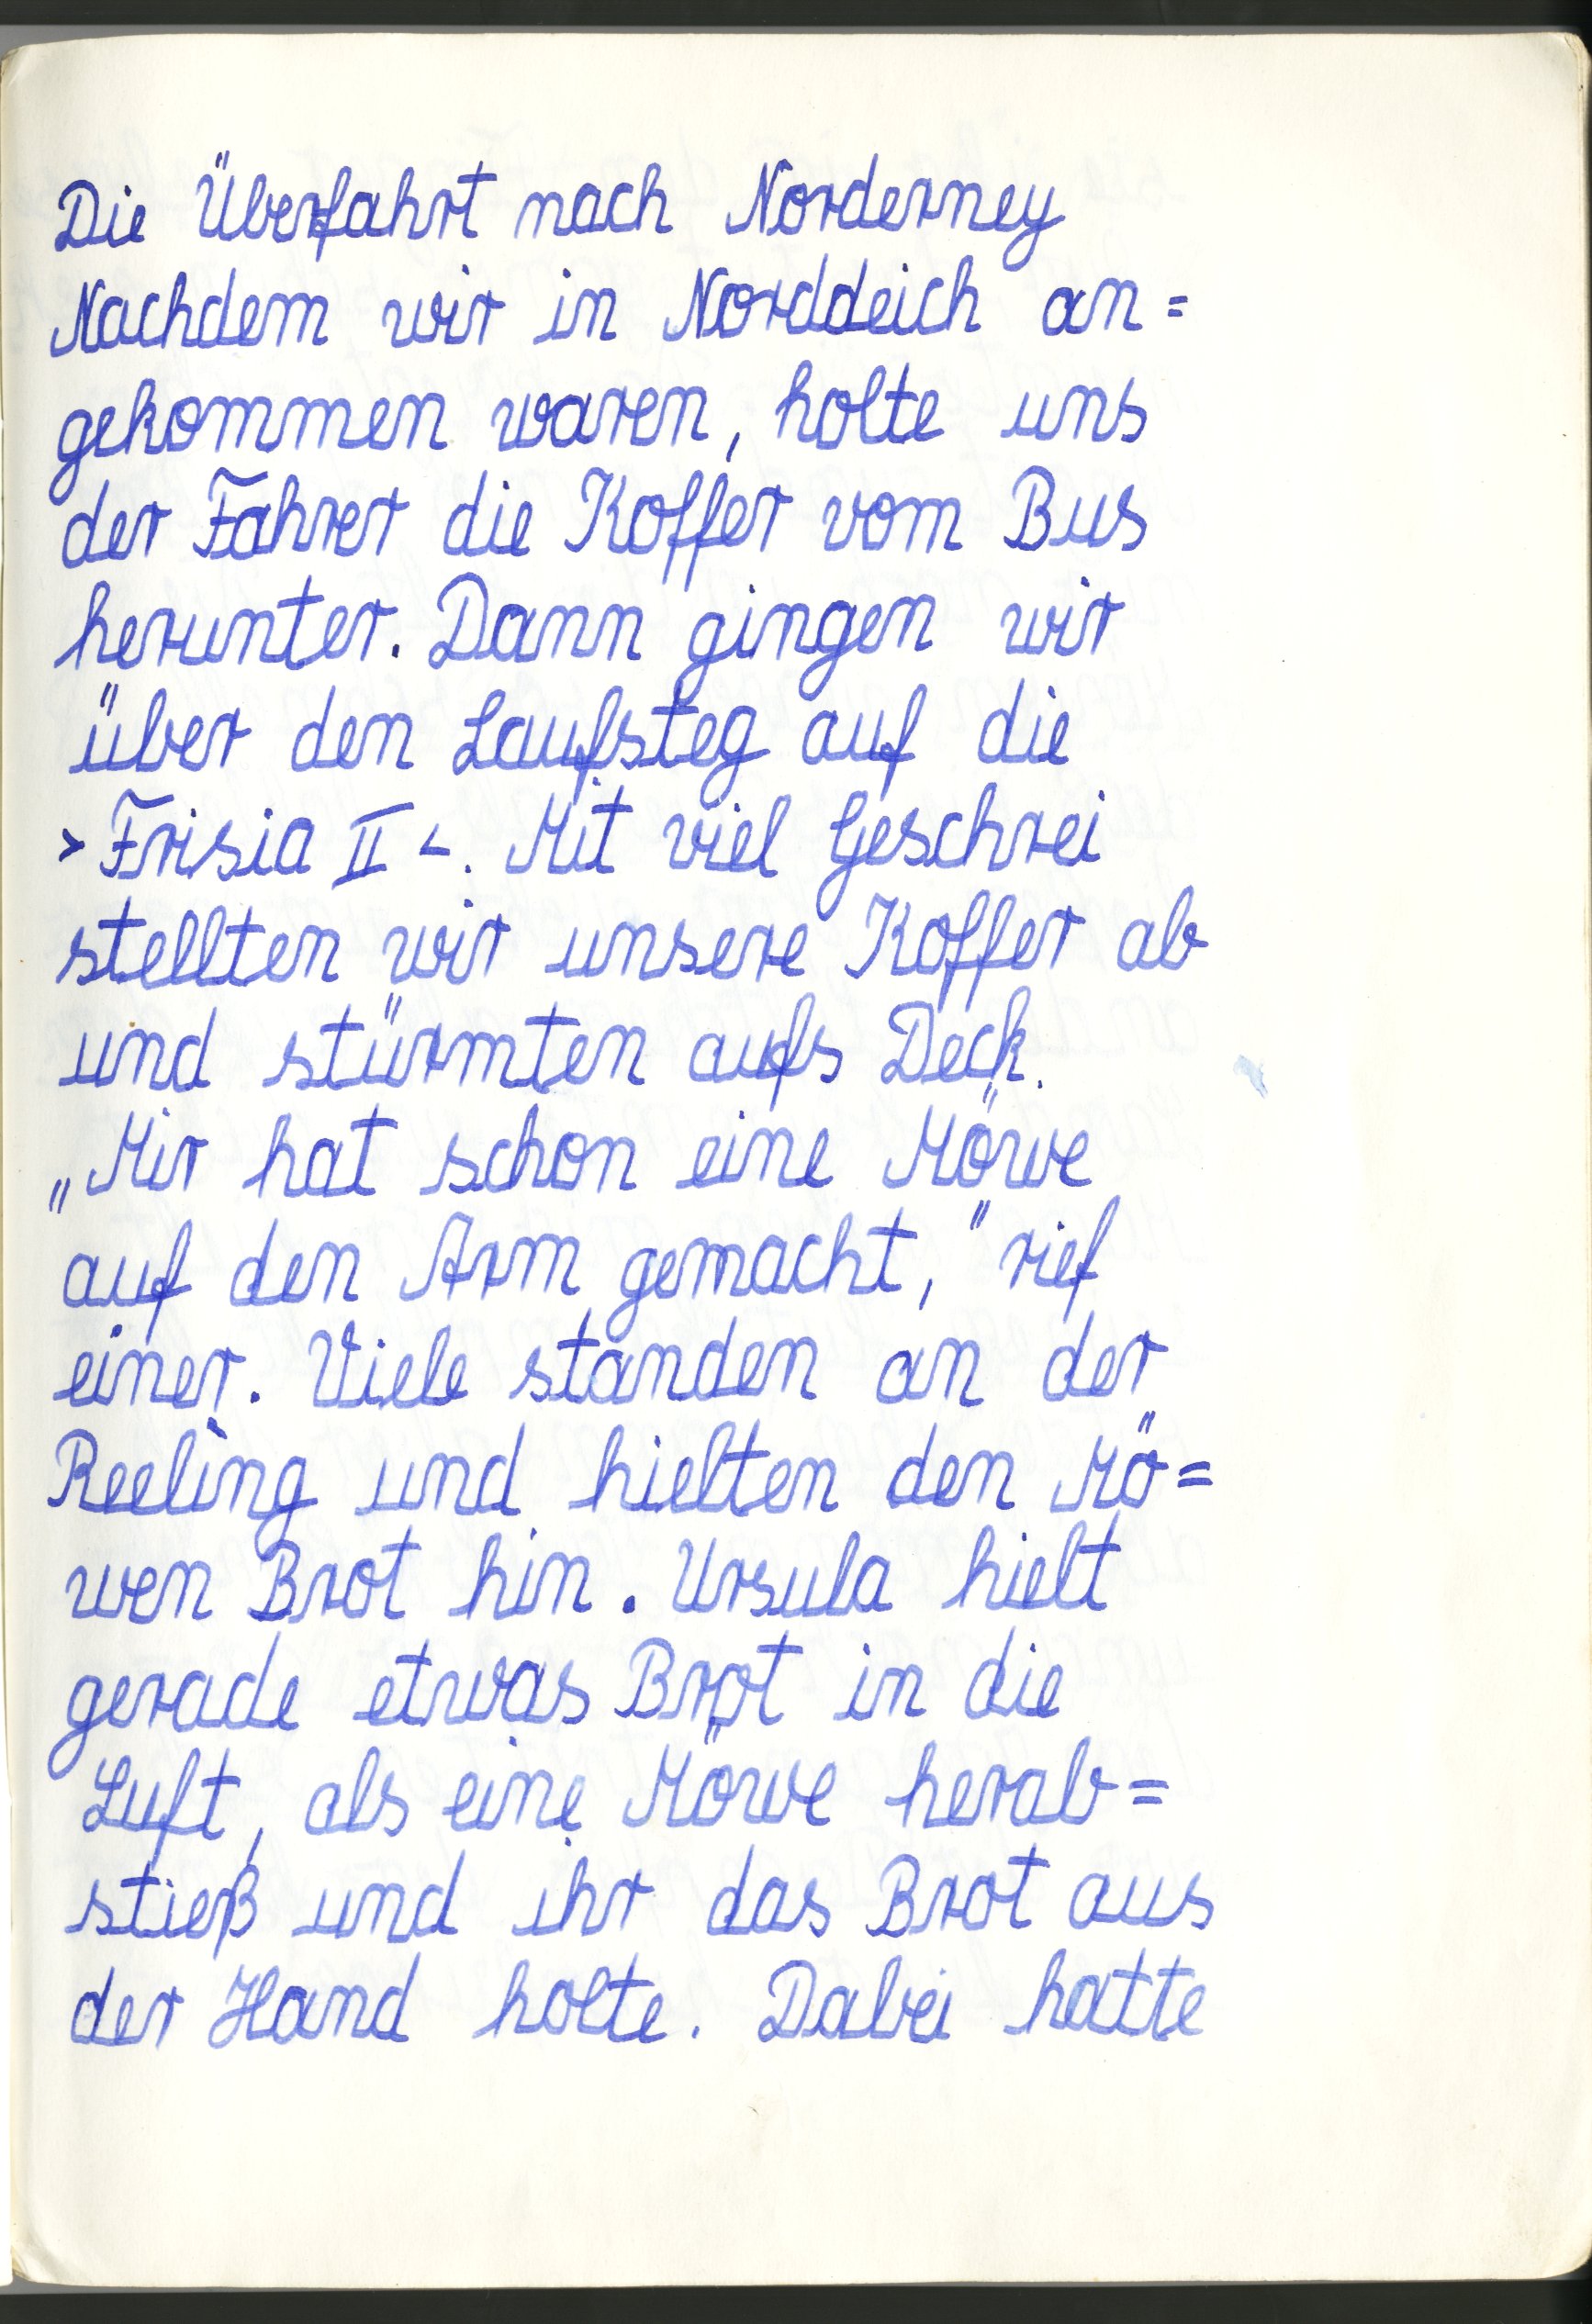 Die Überfahrt nach Norderney
Nachdem wir in Norddeich an=
gekommen waren, holte uns
der Fahrer die Koffer vom Bus
herunter. Dann gingen wir
über den Laufsteg auf die
>Frisia II<. Mit viel Geschrei
stellten wir unsere Koffer ab
und stürmten aufs Deck.
„Mir hat schon eine Möwe
auf den Arm gemacht," rief
einer. Viele standen an der
Reeling und hielten den Mö=
wen Brot hin. Ursula hielt
gerade etwas Brot in die
Luft, als eine Möwe herab=
stieß und ihr das Brot aus
der Hand holte. Dabei hatte